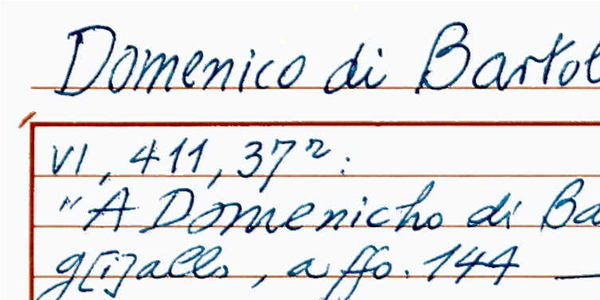 Domenico di Bartol
VI, 411, 37r:
"A Domenicho di Ba
g[i]allo, a ffo. 144 —